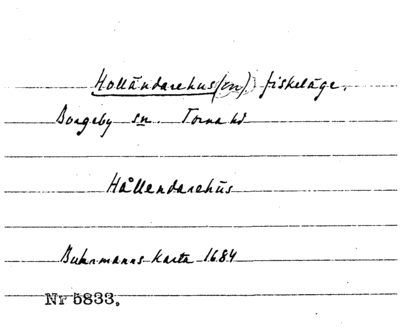 Holländarehus(en) fiskeläge.
Borgeby sn. Torna hd
Hållendarehüs
Buhrmanns karta 1684
Nr 5833.